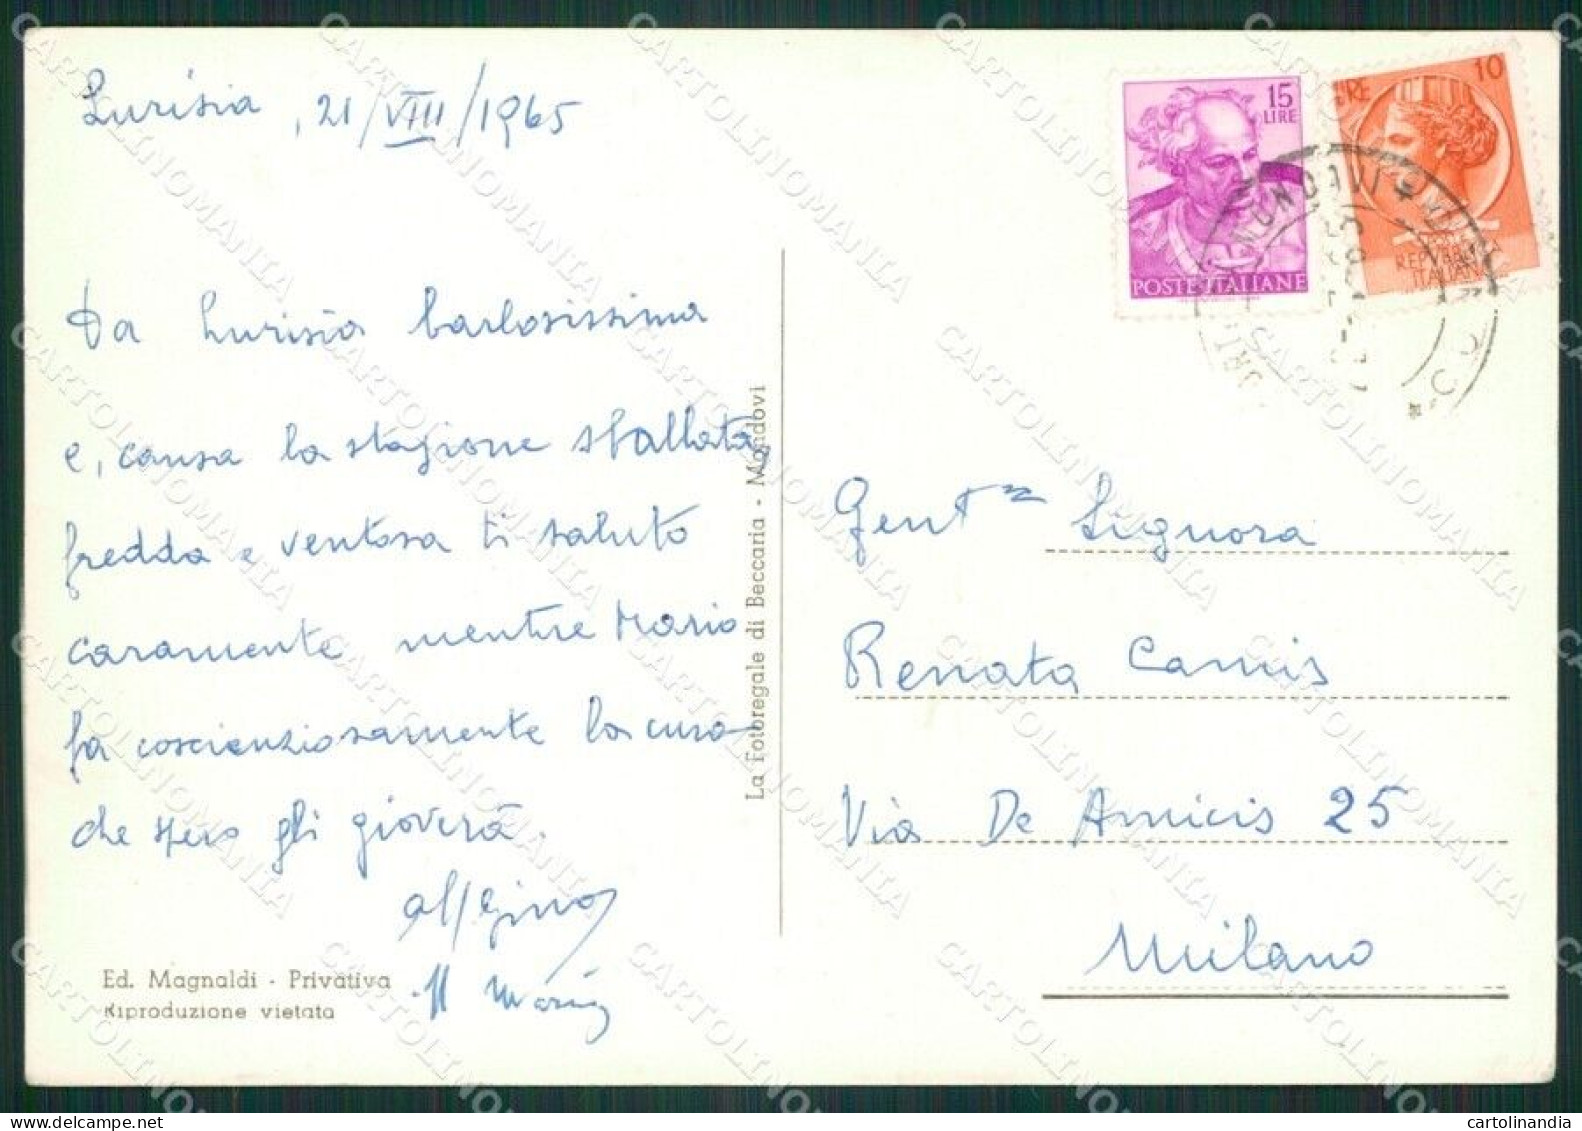 Lurisia, 21/VIII/1965
Da Lurisia barbosissima
e, causa la stagione sballata,
fredda e ventosa ti saluto
caramente mentre Mario
fa coscienziosamente la cura
che spero gli gioverà.
Ed. Magnaldi - Privativa
Riproduzione vietata
La Fotoregale di Beccaria - Mondovi
15
LIRE
POSTE ITALIANE
10
LIRE
REPUBBLICA
ITALIANA
Gent.ma Signora
Renata Camis
Via De Amicis 25
Milano
CARTOLINOMANIA
cartolinandia